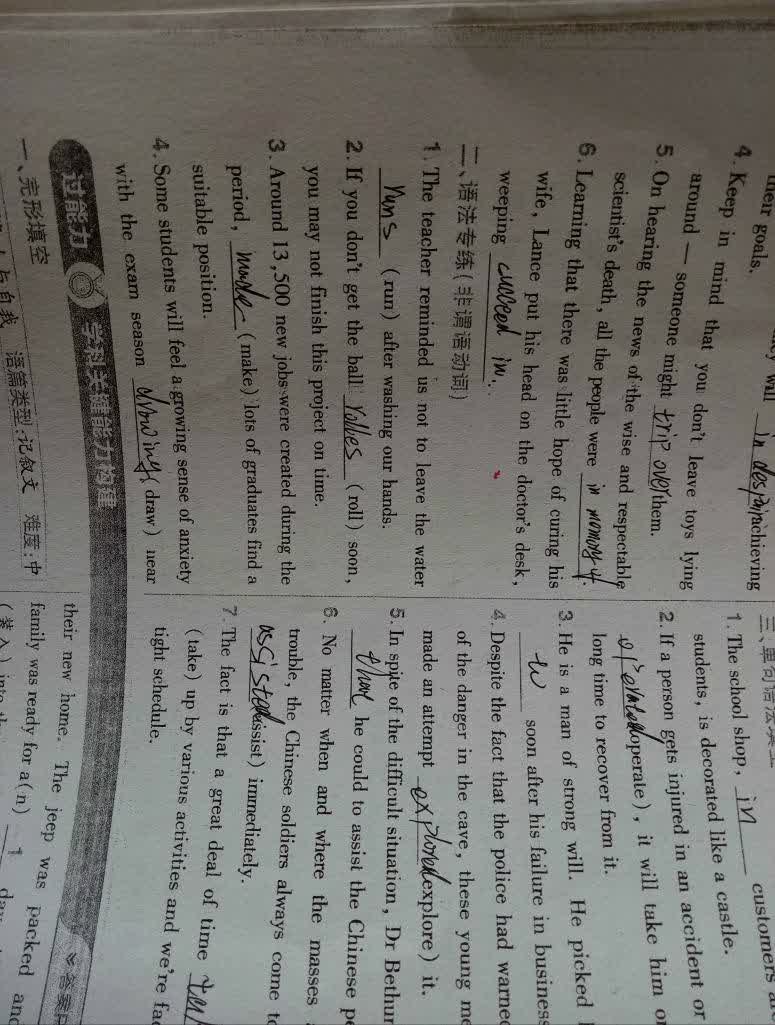 their goals.
4. Keep in mind that you don't leave toys lying
around — someone might trip over them.
5. On hearing the news of the wise and respectable
scientist's death, all the people were in memory of.
6. Learning that there was little hope of curing his
wife, Lance put his head on the doctor's desk,
weeping succeed in.
二、语法专练(非谓语动词)
1. The teacher reminded us not to leave the water
runs (run) after washing our hands.
2. If you don't get the ball rolles (roll) soon,
you may not finish this project on time.
3. Around 13,500 new jobs were created during the
period, made (make) lots of graduates find a
suitable position.
4. Some students will feel a growing sense of anxiety
with the exam season drowing (draw) near
过能力 学科关键能力构建
一、完形填空
语篇类型:记叙文 难度:中
will in despair achieving
1. The school shop, in customers
students, is decorated like a castle.
2. If a person gets injured in an accident or
operated (operate), it will take him
long time to recover from it.
3. He is a man of strong will. He picked
soon after his failure in business
4. Despite the fact that the police had warned
of the danger in the cave, these young
made an attempt explored (explore) it.
5. In spite of the difficult situation, Dr
that he could to assist the Chinese
6. No matter when and where the masses
trouble, the Chinese soldiers always come
assisted (assist) immediately.
7. The fact is that a great deal of time
(take) up by various activities and we're
tight schedule.
their new home. The jeep was packed and
family was ready for a(n) 1